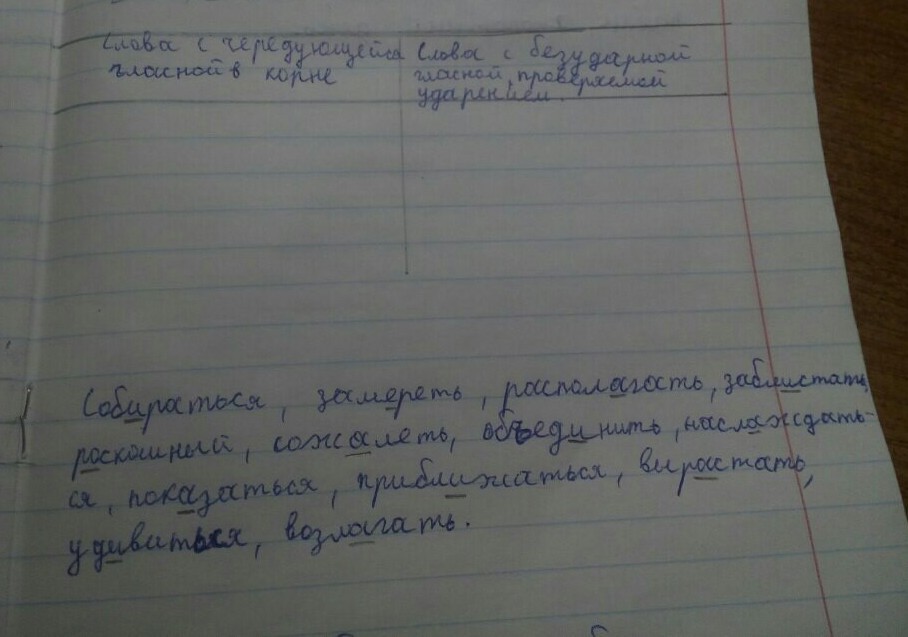 Слова с чередующейся
гласной в корне
Слова с безударной
гласной, проверяемой
ударением.
Собираться, замереть, располагать, заблистать,
роскошный, сожалеть, объединить, наслаждать-
ся, показаться, приближаться, вырастать,
удивиться, возлагать.